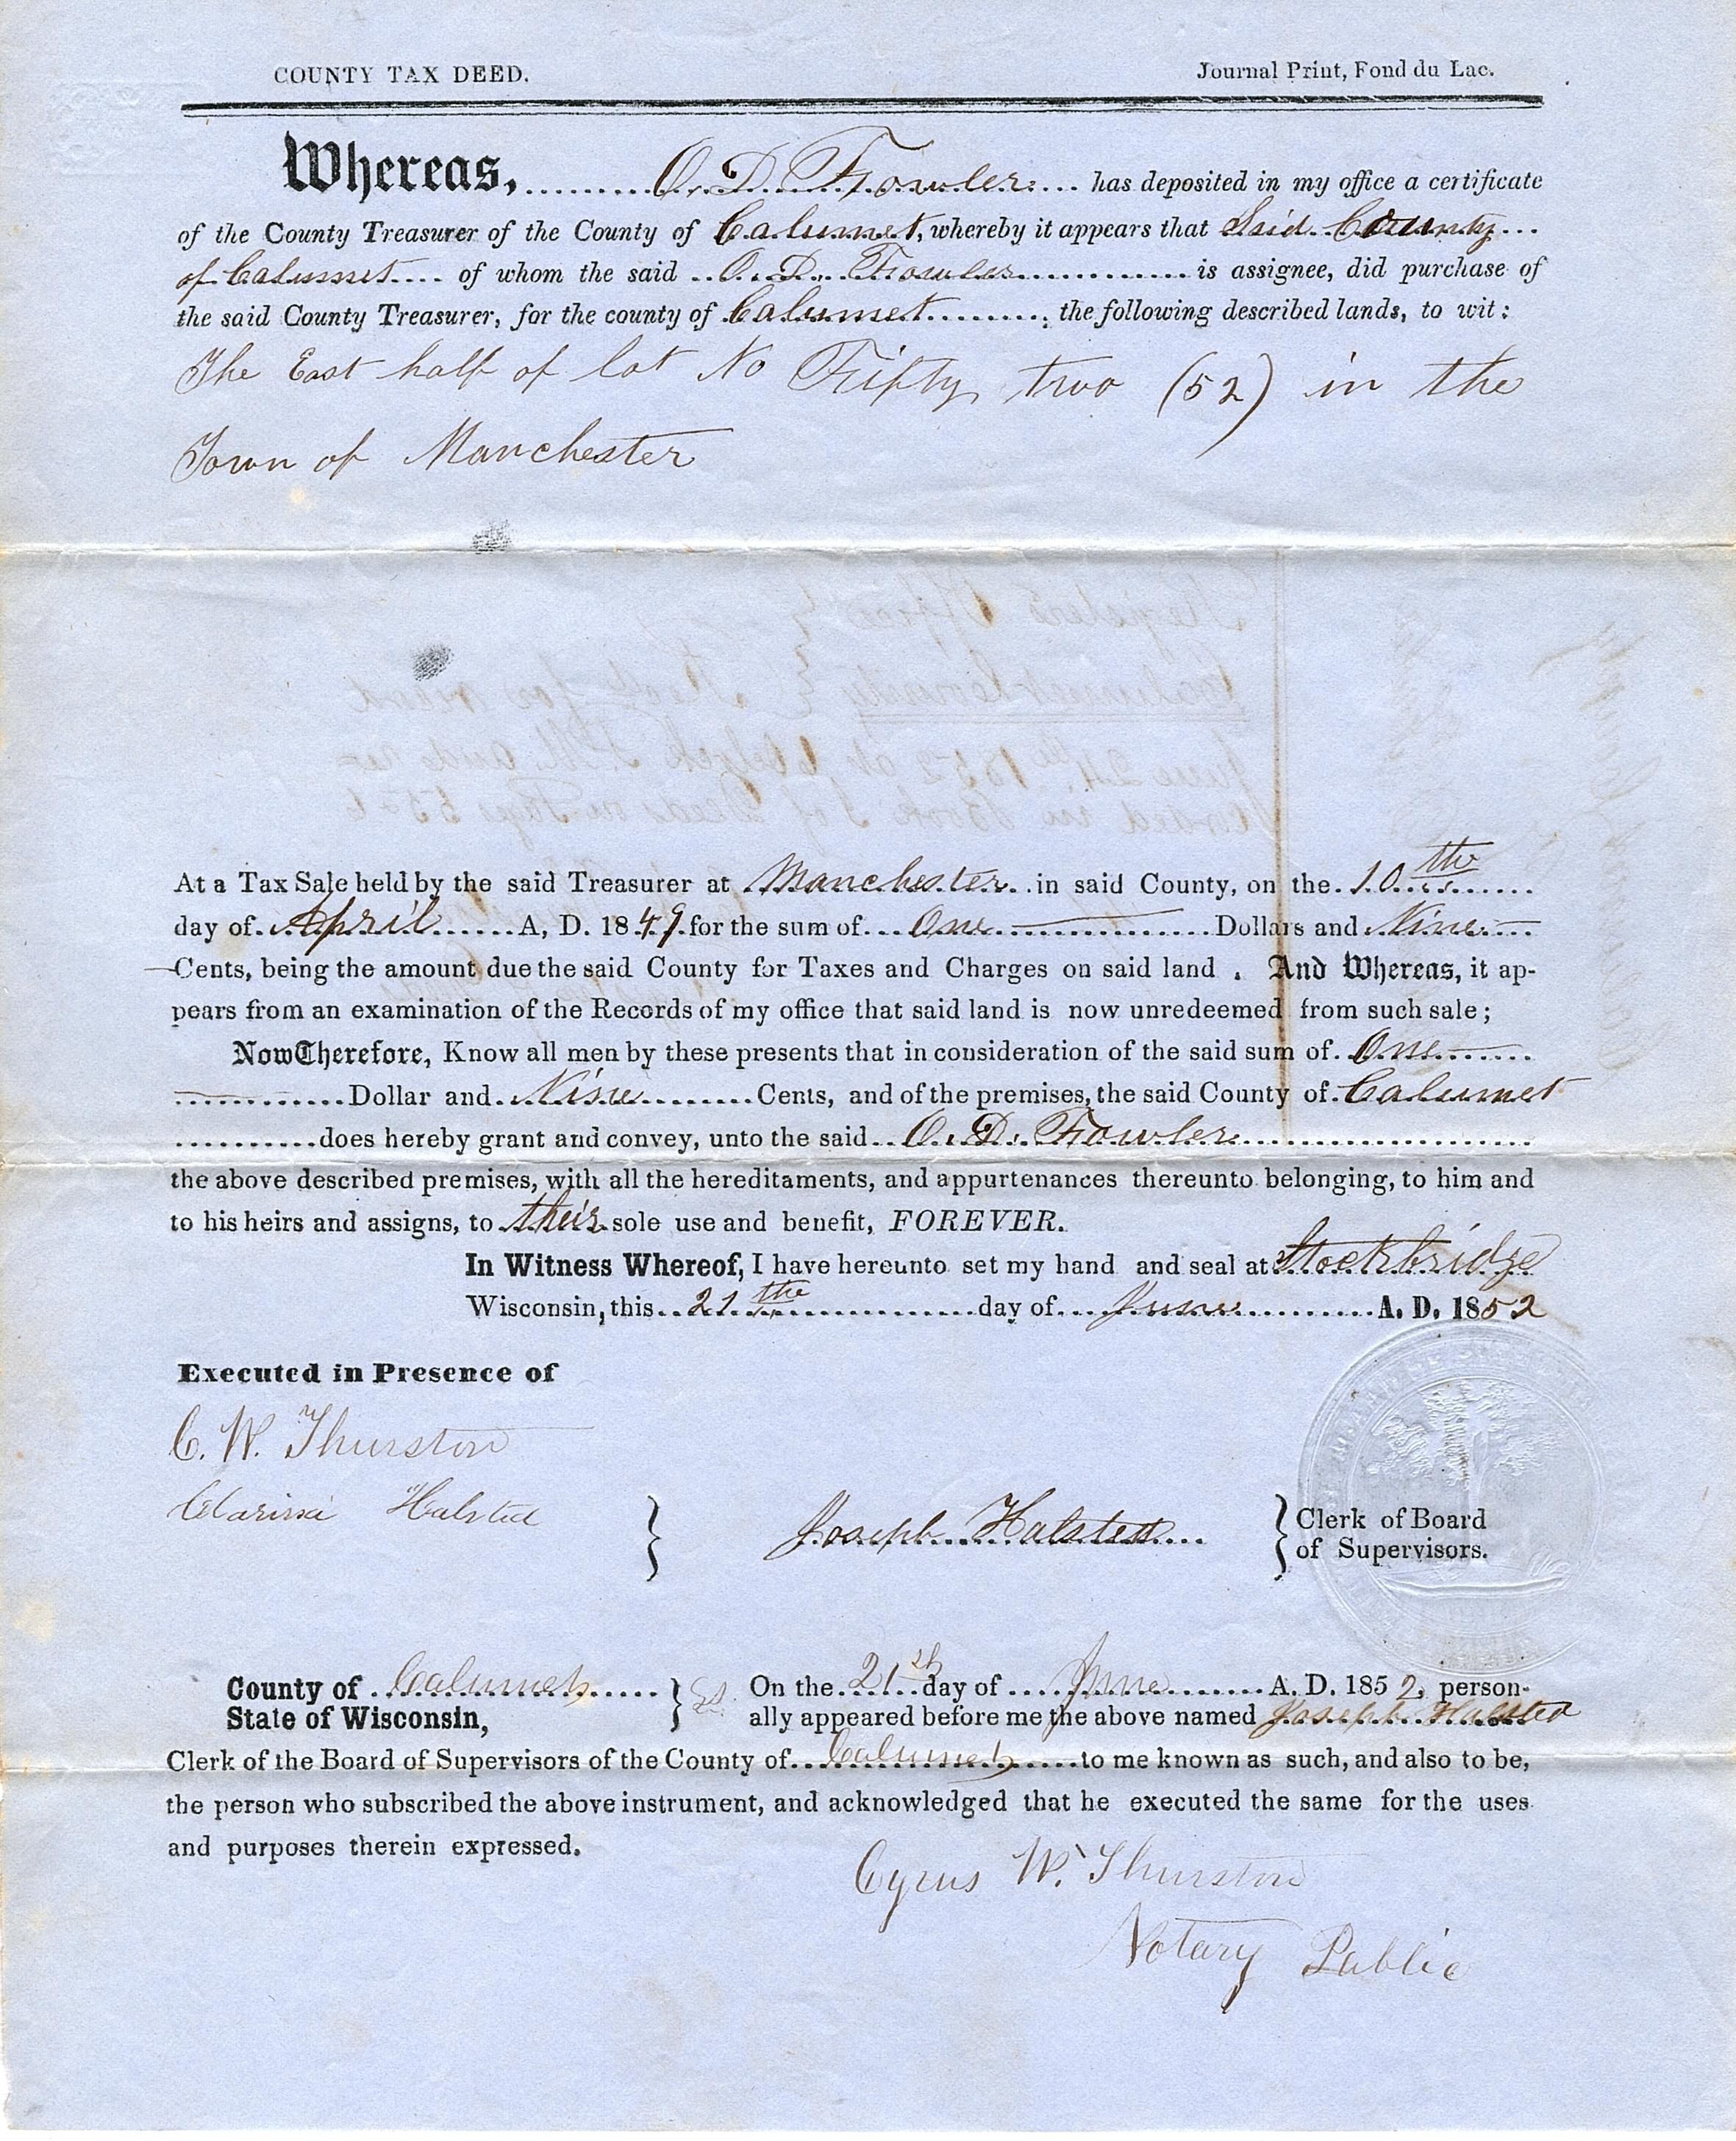 COUNTY TAX DEED. Journal Print, Fond du Lac.
Whereas, O. D. Fowler has deposited in my office a certificate
of the County Treasurer of the County of Calumet, whereby it appears that Said County
of Calumet of whom the said O. D. Fowler is assignee, did purchase of
the said County Treasurer, for the county of Calumet, the following described lands, to wit:
The East half of lot No Fifty two (52) in the
Town of Manchester
At a Tax Sale held by the said Treasurer at Manchester in said County, on the 10th
day of April A, D. 1849 for the sum of One Dollars and Nine
Cents, being the amount due the said County for Taxes and Charges on said land . And Whereas, it ap-
pears from an examination of the Records of my office that said land is now unredeemed from such sale;
Now Therefore, Know all men by these presents that in consideration of the said sum of One
Dollar and Nine Cents, and of the premises, the said County of Calumet
does hereby grant and convey, unto the said O. D. Fowler
the above described premises, with all the hereditaments, and appurtenances thereunto belonging, to him and
to his heirs and assigns, to their sole use and benefit, FOREVER.
In Witness Whereof, I have hereunto set my hand and seal at Stockbridge
Wisconsin, this 21the day of June A. D. 1852
Executed in Presence of
C. W. Thurston
Clarissa Halsted
Joseph Halsted } Clerk of Board
of Supervisors.
County of Calumet } ss. On the 21st day of June A. D. 1852, person-
State of Wisconsin, ally appeared before me the above named Joseph Halsted
Clerk of the Board of Supervisors of the County of Calumet to me known as such, and also to be,
the person who subscribed the above instrument, and acknowledged that he executed the same for the uses
and purposes therein expressed.
Cyrus W. Thurston
Notary Public